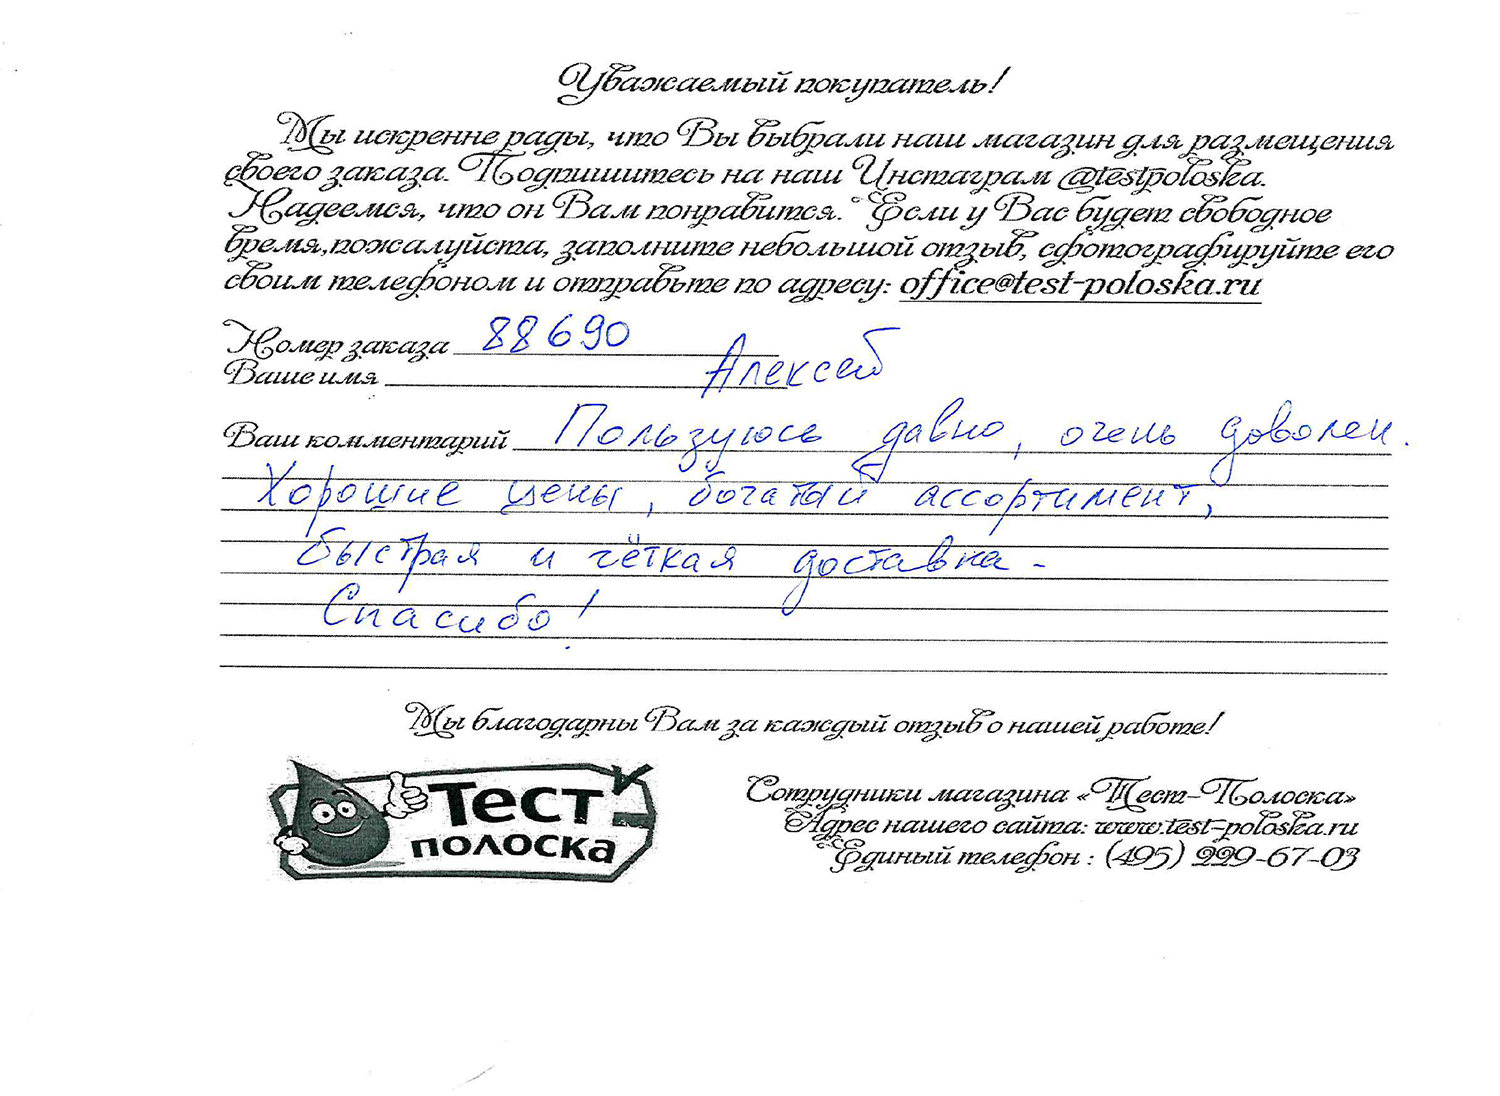 Уважаемый покупатель!
Мы искренне рады, что Вы выбрали наш магазин для размещения
своего заказа. Подпишитесь на наш Инстаграм @testpoloska.
Надеемся, что он Вам понравится. Если у Вас будет свободное
время,пожалуйста, заполните небольшой отзыв, сфотографируйте его
своим телефоном и отправьте по адресу: office@test-poloska.ru
Номер заказа 88690
Ваше имя Алексей
Ваш комментарий Пользуюсь давно, очень доволен.
Хорошие цены, богатый ассортимент,
быстрая и чёткая доставка.
Спасибо!
Мы благодарны Вам за каждый отзыв о нашей работе!
Тест
полоска
Сотрудники магазина «Тест-Полоска»
Адрес нашего сайта: www.test-poloska.ru
Единый телефон : (495) 229-67-03